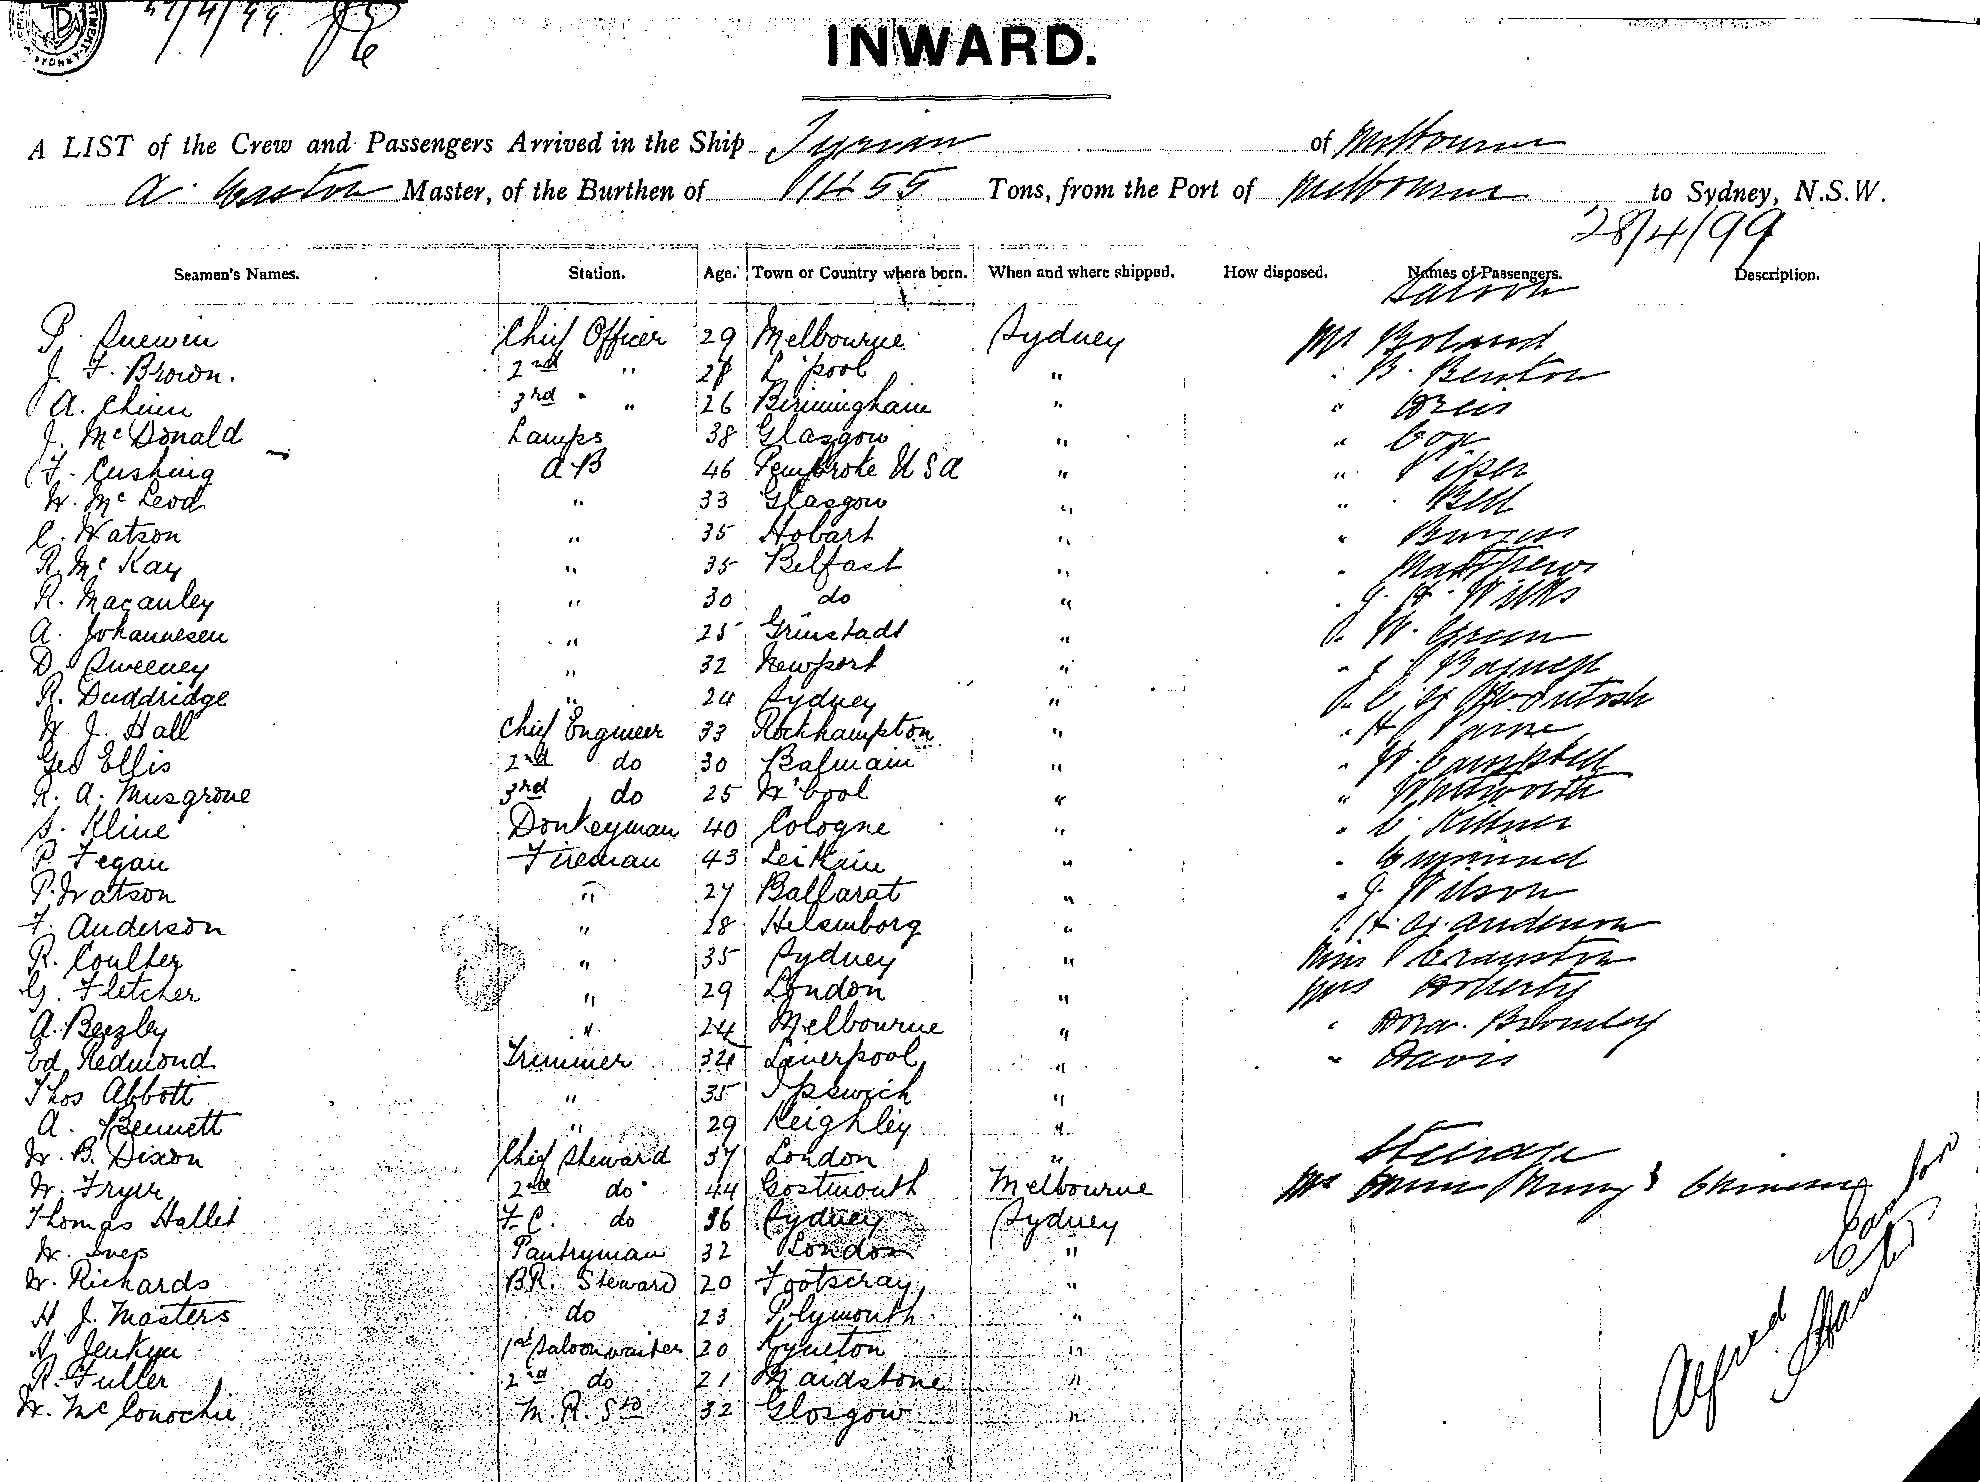 27/4/99
INWARD.
A LIST of the Crew and Passengers Arrived in the Ship Tyrian of Melbourne
A. Master, of the Burthen of 1455 Tons, from the Port of Melbourne to Sydney, N.S.W.
28/4/99
Seamen's Names. Station. Age. Town or Country where born. When and where shipped. How disposed. Names of Passengers. Description.
Saloon
P. Chief Officer 29 Melbourne Sydney Mr Boland
J. F. Brown. 2nd " 28 L'pool " " B. Benton
A. 3rd " " 26 Birmingham " "
J. McDonald Lamps 38 Glasgow " " Cox
F. Cushing AB 46 Pembroke USA " " Piper
W. McLeod " 33 Glasgow " " Bell
C. Watson " 35 Hobart " " Burgess
R. McKay " 35 Belfast " " Matthews
R. Macauley " 30 do " " J. H. Wilks
A. Johannesen " 25 Grinstadt " " W. Green
D. Sweeney " 32 Newport " " J. J.
R. Duddridge " 24 Sydney " " McIntosh
W. J. Hall Chief Engineer 33 Rockhampton " " H.
Geo Ellis 2nd do 30 Balmain " " W. Campbell
R. A. Musgrove 3rd do 25 W'bool " "
S. Kline Donkeyman 40 Cologne " " C.
P. Fegan Fireman 43 " "
P. Watson " 27 Ballarat " " J. Wilson
F. Anderson " 28 Helsinborg " " H. G. Anderson
R. Coulter " 35 Sydney " Miss Cranston
G. Fletcher " 29 London " Mrs Doherty
A. Beezley " 24 Melbourne " " Bromley
Ed Redmond Trimmer 32 Liverpool " " Davis
Thos Abbott " 35 Ipswich "
A. Bennett " 29 Keighley "
Steerage
W. B. Dixon Chief Steward 37 London "
W. Fryer 2nd do 44 Gostmouth Melbourne
Thomas Hallet F.C. do 36 Sydney Sydney
W. Ives Pantryman 32 London "
W. Richards B.R. Steward 20 Footscray "
H. J. Masters do 23 Plymouth "
H. Jenkyn 1st Saloonwaiter 20 Kyneton "
R. Fuller 2nd do 21 Maidstone "
W. McConochie M.R. Std 32 Glasgow "
Alfred
Master